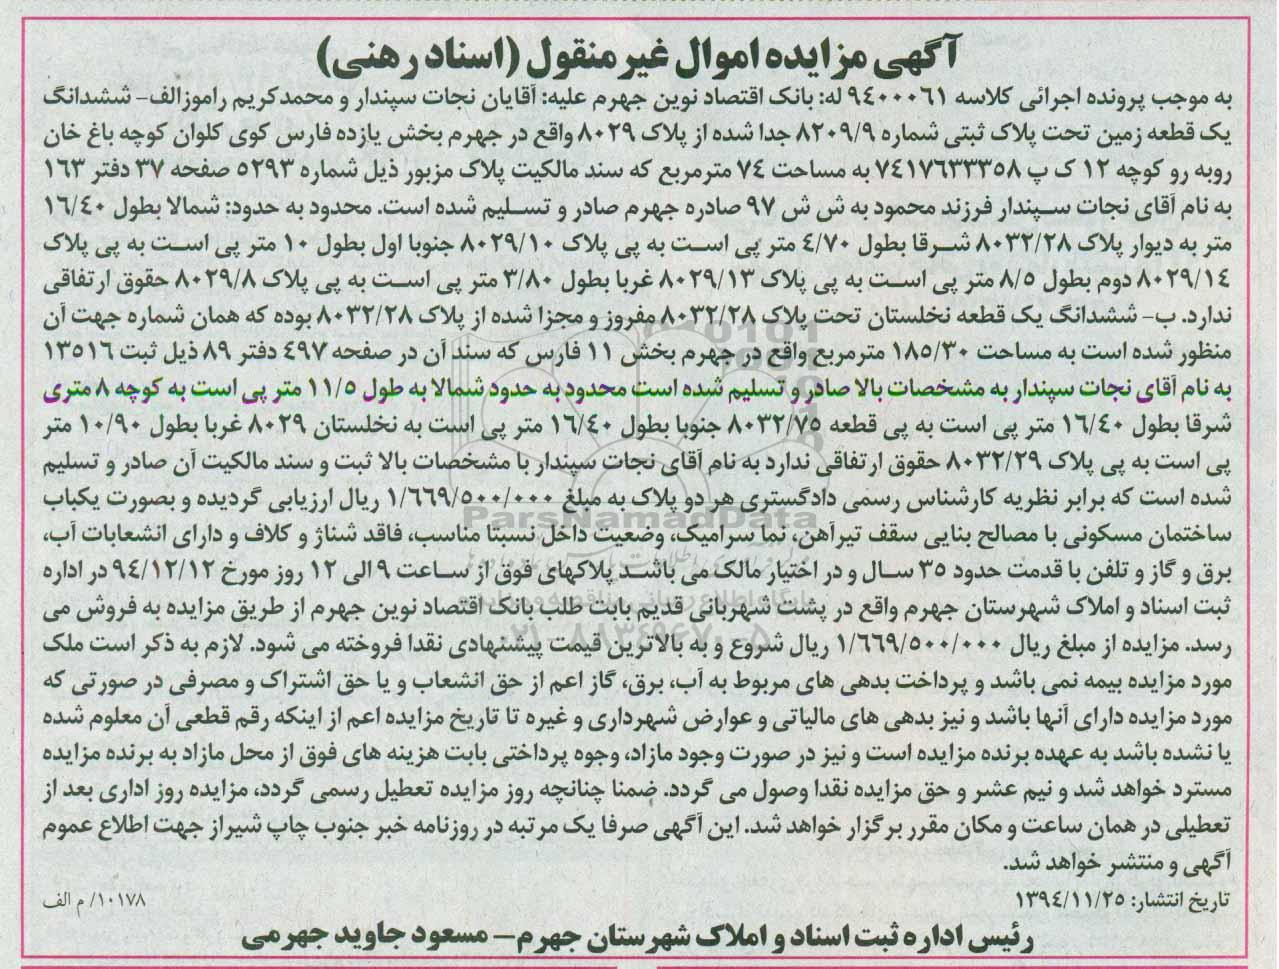 آگهی مزایده اموال غیر منقول (اسناد رهنی)
به موجب پرونده اجرائی کلاسه ۹۴۰۰۰۶۱ له: بانک اقتصاد نوین جهرم علیه: آقایان نجات سپندار و محمدکریم راموزالف- ششدانگ
یک قطعه زمین تحت پلاک ثبتی شماره ۸۲۰۹/۹ جدا شده از پلاک ۸۰۲۹ واقع در جهرم بخش یازده فارس کوی کلوان کوچه باغ خان
روبه رو کوچه ۱۲ ک پ ۷۴۱۷۶۳۳۳۵۸ به مساحت ۷۴ مترمربع که سند مالکیت پلاک مزبور ذیل شماره ۵۲۹۳ صفحه ۳۷ دفتر ۱۶۳
به نام آقای نجات سپندار فرزند محمود به ش ش ۹۷ صادره جهرم صادر و تسلیم شده است. محدود به حدود: شمالا بطول ۱۶/۴۰
متر به دیوار پلاک ۸۰۳۲/۲۸ شرقا بطول ۴/۷۰ متر پی است به پی پلاک ۸۰۲۹/۱۰ جنوبا اول بطول ۱۰ متر پی است به پی پلاک
۸۰۲۹/۱۴ دوم بطول ۸/۵ متر پی است به پی پلاک ۸۰۲۹/۱۳ غربا بطول ۳/۸۰ متر پی است به پی پلاک ۸۰۲۹/۸ حقوق ارتفاقی
ندارد. ب- ششدانگ یک قطعه نخلستان تحت پلاک ۸۰۳۲/۲۸ مفروز و مجزا شده از پلاک ۸۰۳۲/۲۸ بوده که همان شماره جهت آن
منظور شده است به مساحت ۱۸۵/۳۰ مترمربع واقع در جهرم بخش ۱۱ فارس که سند آن در صفحه ۴۹۷ دفتر ۸۹ ذیل ثبت ۱۳۵۱۶
به نام آقای نجات سپندار به مشخصات بالا صادر و تسلیم شده است محدود به حدود شمالا به طول ۱۱/۵ متر پی است به کوچه ۸ متری
شرقا بطول ۱۶/۴۰ متر پی است به پی قطعه ۸۰۳۲/۷۵ جنوبا بطول ۱۶/۴۰ متر پی است به نخلستان ۸۰۲۹ غربا بطول ۱۰/۹۰ متر
پی است به پی پلاک ۸۰۳۲/۲۹ حقوق ارتفاقی ندارد به نام آقای نجات سپندار با مشخصات بالا ثبت و سند مالکیت آن صادر و تسلیم
شده است که برابر نظریه کارشناس رسمی دادگستری هر دو پلاک به مبلغ ۱/۶۶۹/۵۰۰/۰۰۰ ریال ارزیابی گردیده و بصورت یکباب
ParsNamadData
ساختمان مسکونی با مصالح بنایی سقف تیرآهن، نما سرامیک، وضعیت داخل نسبتا مناسب، فاقد شناژ و کلاف و دارای انشعابات آب،
برق و گاز و تلفن با قدمت حدود ۳۵ سال و در اختیار مالک می باشد پلاکهای فوق از ساعت ۹ الی ۱۲ روز مورخ ۹۴/۱۲/۱۲ در اداره
ثبت اسناد و املاک شهرستان جهرم واقع در پشت شهربانی قدیم بابت طلب بانک اقتصاد نوین جهرم از طریق مزایده به فروش می
۰۲۱-۸۸۳۴۹۶۷۰-۵
رسد. مزایده از مبلغ ریال ۱/۶۶۹/۵۰۰/۰۰۰ ریال شروع و به بالاترین قیمت پیشنهادی نقدا فروخته می شود. لازم به ذکر است ملک
مورد مزایده بیمه نمی باشد و پرداخت بدهی های مربوط به آب، برق، گاز اعم از حق انشعاب و یا حق اشتراک و مصرفی در صورتی که
مورد مزایده دارای آنها باشد و نیز بدهی های مالیاتی و عوارض شهرداری و غیره تا تاریخ مزایده اعم از اینکه رقم قطعی آن معلوم شده
یا نشده باشد به عهده برنده مزایده است و نیز در صورت وجود مازاد، وجوه پرداختی بابت هزینه های فوق از محل مازاد به برنده مزایده
مسترد خواهد شد و نیم عشر و حق مزایده نقدا وصول می گردد. ضمنا چنانچه روز مزایده تعطیل رسمی گردد، مزایده روز اداری بعد از
تعطیلی در همان ساعت و مکان مقرر برگزار خواهد شد. این آگهی صرفا یک مرتبه در روزنامه خبر جنوب چاپ شیراز جهت اطلاع عموم
آگهی و منتشر خواهد شد.
تاریخ انتشار: ۱۳۹۴/۱۱/۲۵
۱۰۱۷۸/ م الف
رئیس اداره ثبت اسناد و املاک شهرستان جهرم- مسعود جاوید جهرمی